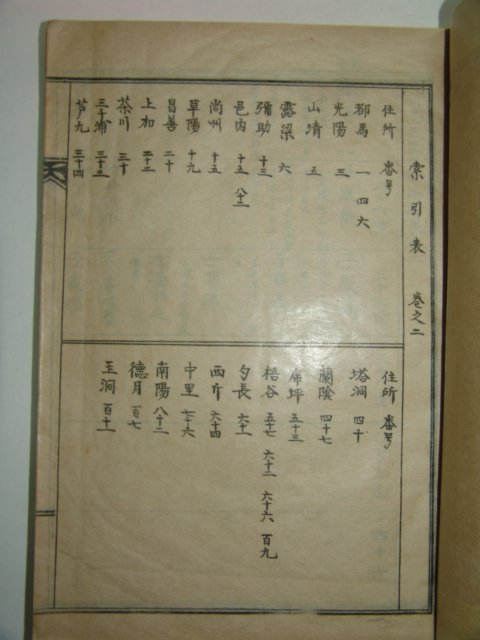 索引表 卷之二
住所 番号
都馬 一 四六
光陽 三
山清 五
露梁 六
彌助 十三
邑内 十五 八十二
尚州 十五
草陽 十九
昌善 二十
上加 二十二
茶川 三十
三千浦 三十三
芦九 三十四
住所 番号
塔洞 四十
蘭陰 四十七
席坪 五十三
梧谷 五十七 六十二 六十六 百九
勺長 六十一
西斤 六十四
中里 七十六
南陽 八十二
德月 百七
玉洞 百十一